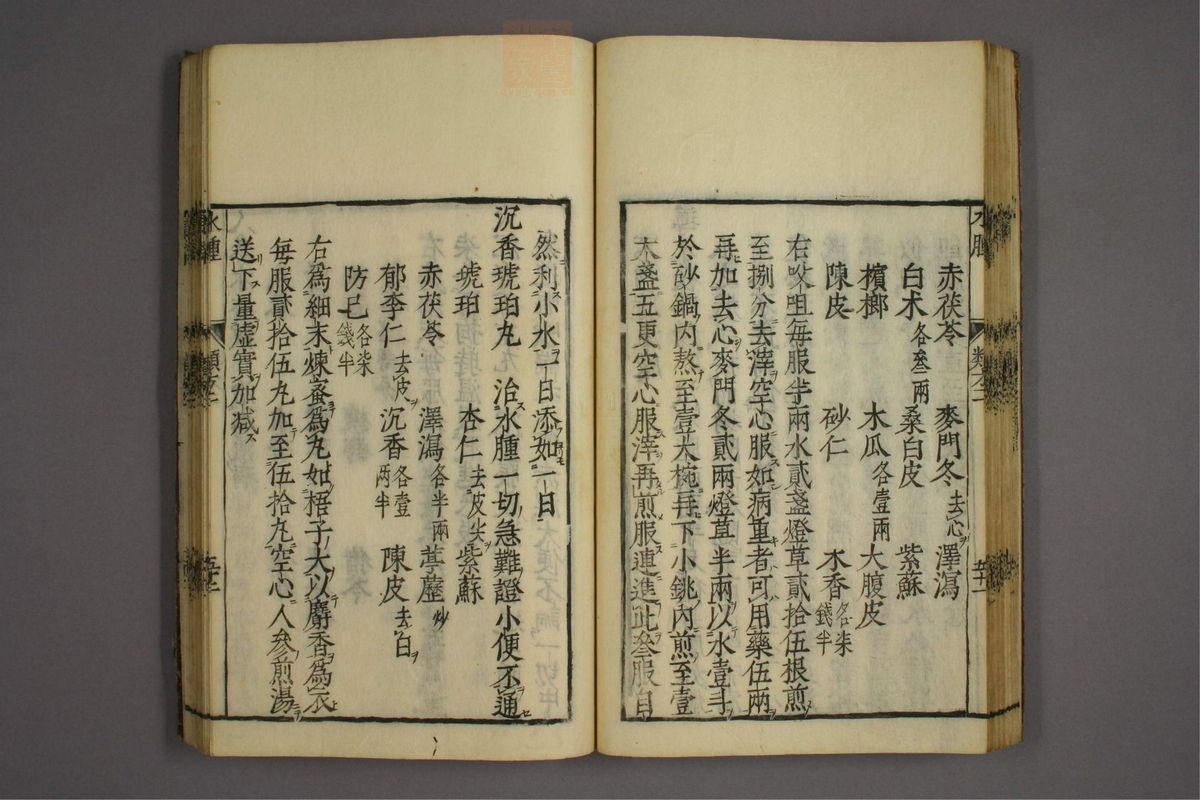 赤茯苓 麥門冬 去心 澤瀉
白术 各叄兩 桑白皮 紫蘇
檳榔 木瓜 各壹兩 大腹皮
陳皮 砂仁 木香 各柒錢半
右㕮咀每服半兩水貳盞燈草貳拾伍根煎
至捌分去滓空心服如病重者可用藥伍兩
再加去心麥門冬貳兩燈草半兩以水壹斗
於砂鍋內熬至壹大椀再下小銚內煎至壹
大盞五更空心服滓再煎服連進此叄服自
然利小水一日添如一日
沉香琥珀丸 治水腫一切急難證小便不通
琥珀 杏仁 去皮尖 紫蘇
赤茯苓 澤瀉 各半兩 葶藶 炒
郁李仁 去皮 沉香 各壹兩半 陳皮 去白
防已 各柒錢半
右爲細末煉蜜爲丸如梧子大以麝香爲衣
每服貳拾伍丸加至伍拾丸空心人參煎湯
送下量虛實加減
水腫